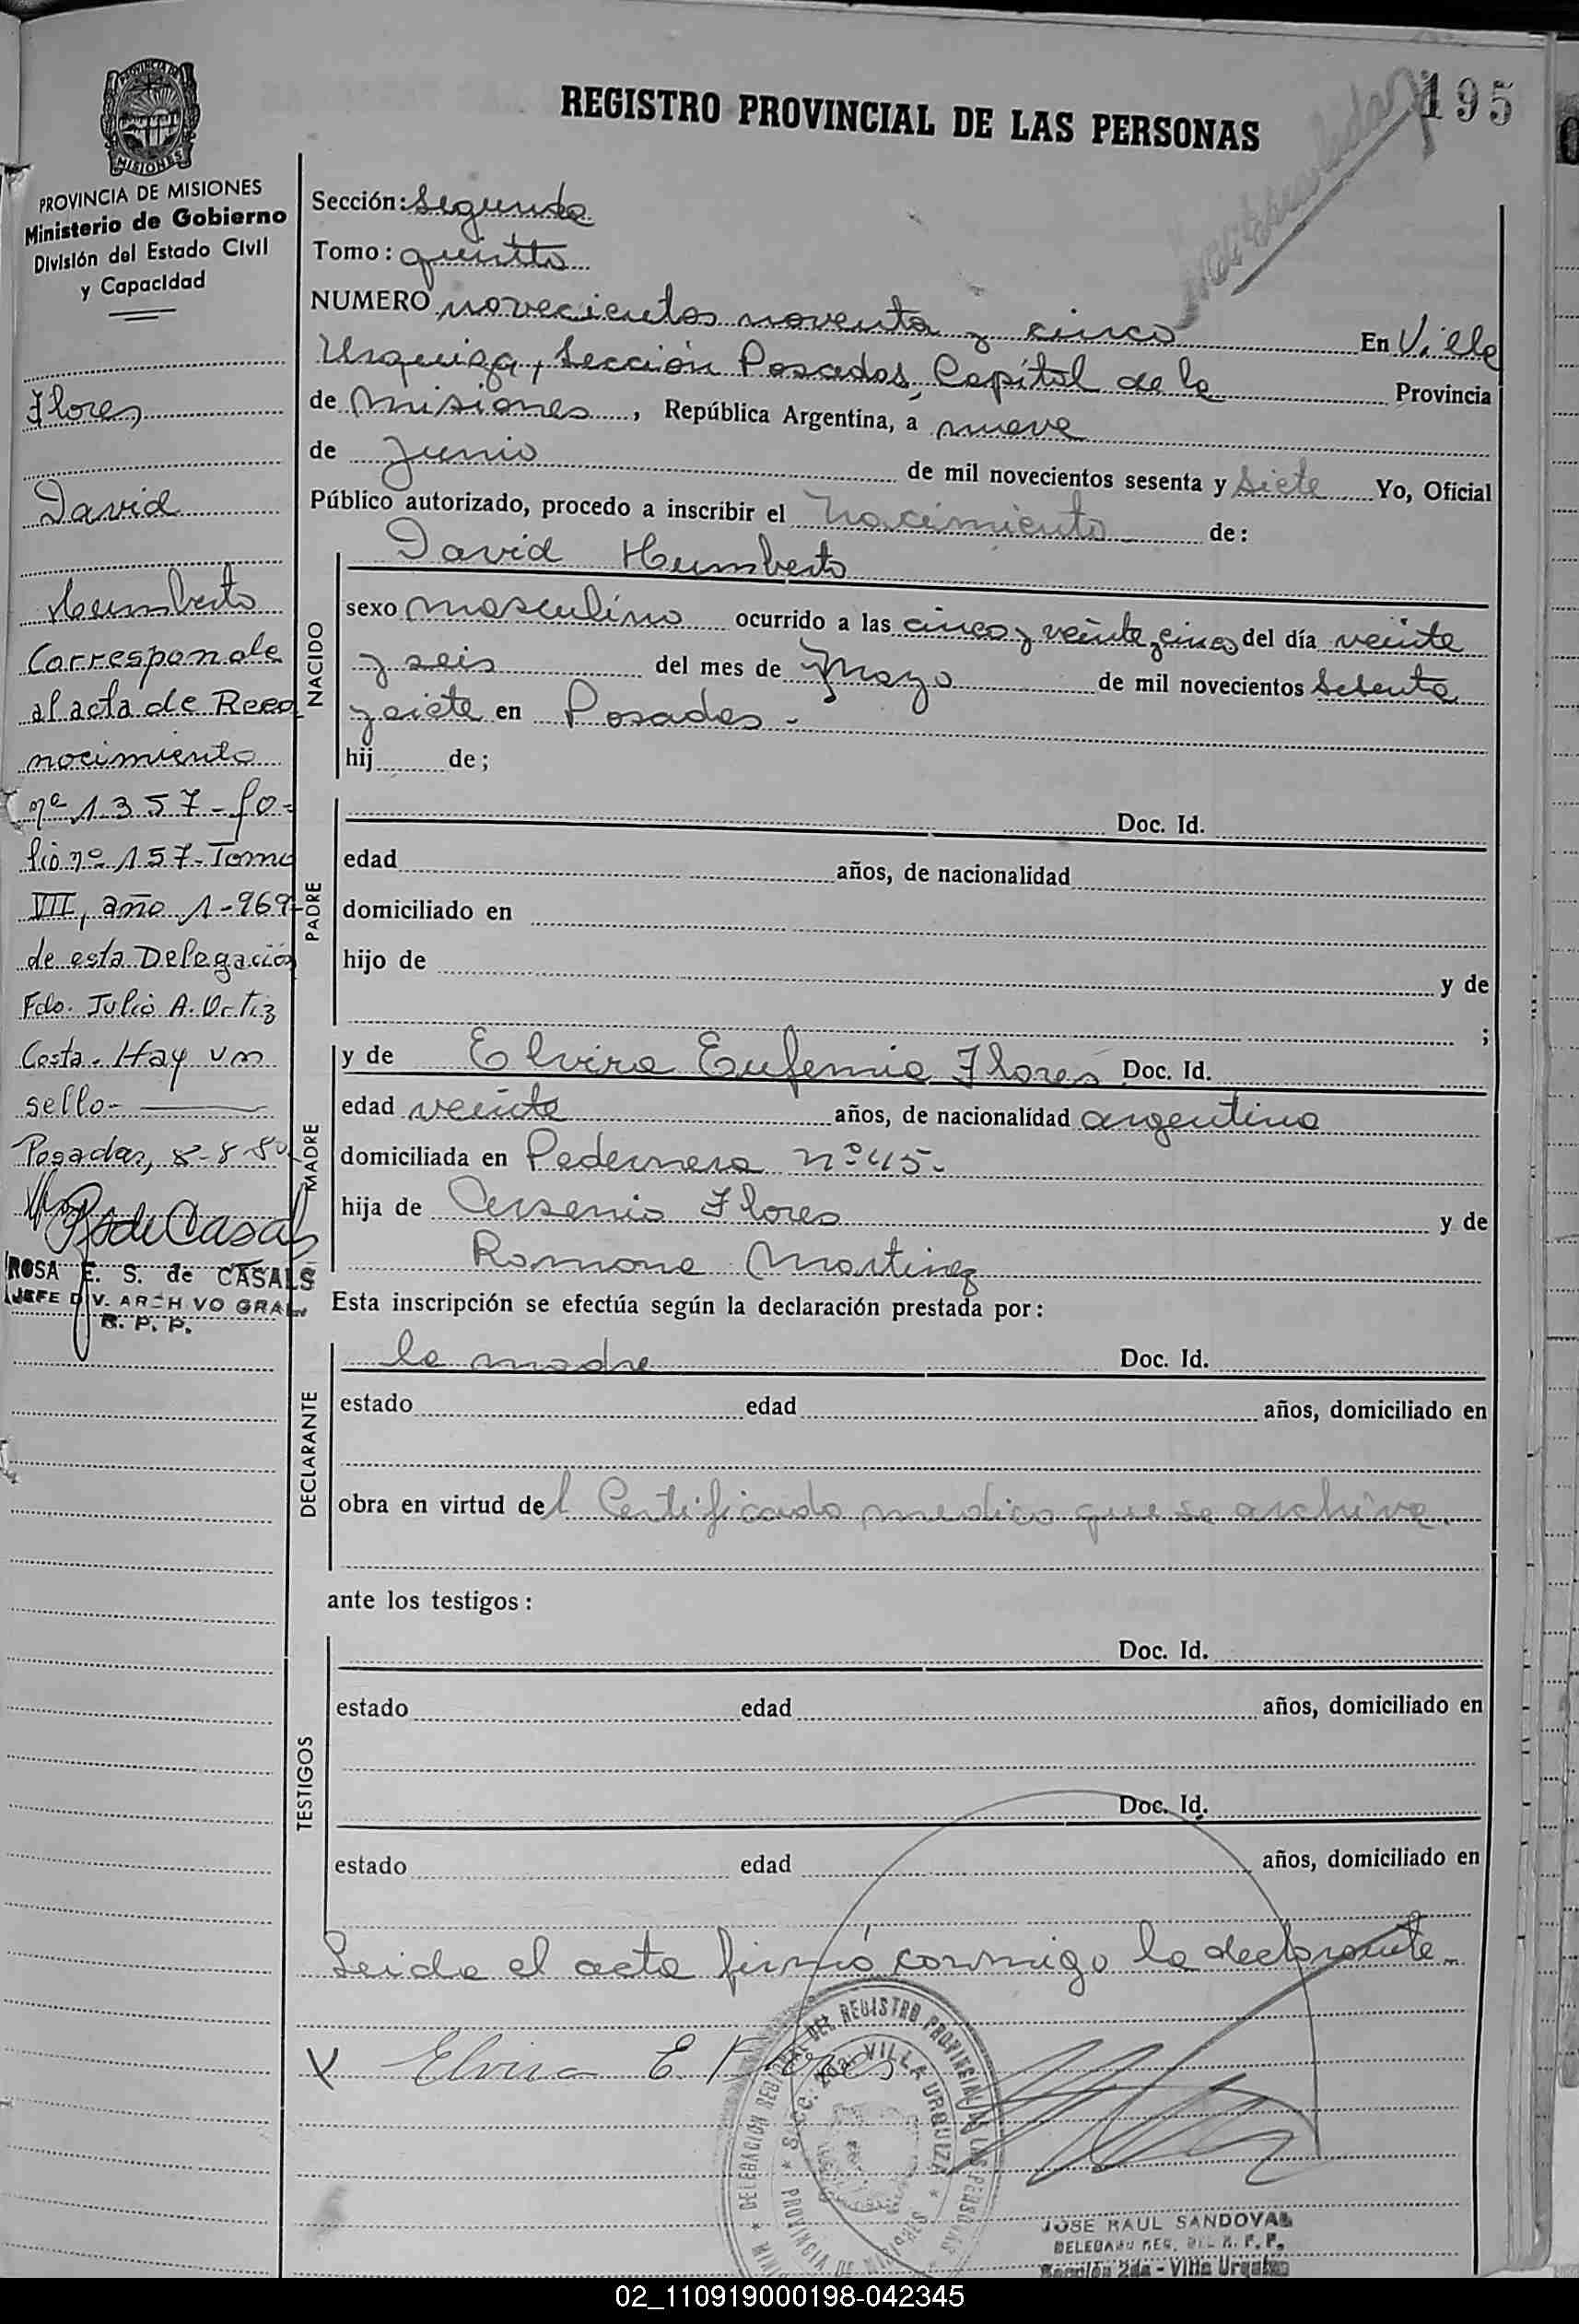 195
REGISTRO PROVINCIAL DE LAS PERSONAS
PROVINCIA DE
MISIONES
PROVINCIA DE MISIONES
Ministerio de Gobierno
División del Estado Civil
y Capacidad
Flores,
David
Humberto
Corresponde
al acta de Reco
nocimiento
nº 1357-fo-
lio nº 157-Tomo
VII, año 1-969-
de esta Delegación
Fdo. Julio A. Ortiz
Costa. Hay un
sello-
Posadas, 8-8-80
ROSA E. S. de CASALS
JEFE DIV. ARCHIVO GRAL.
R. P. P.
Sección: Segunda
Tomo: quinto
NUMERO novecientos noventa y cinco En Villa
Urquiza, Sección Posadas, Capital de la Provincia
de Misiones, República Argentina, a nueve
de Junio de mil novecientos sesenta y siete Yo, Oficial
Público autorizado, procedo a inscribir el nacimiento de:
NACIDO
David Humberto
sexo masculino ocurrido a las cinco y veinte y cinco del día veinte
y seis del mes de Mayo de mil novecientos sesenta
y siete en Posadas.-
hij de;
PADRE
Doc. Id.
edad años, de nacionalidad
domiciliado en
hijo de y de
;
MADRE
y de Elvira Eufemia Flores Doc. Id.
edad veinte años, de nacionalidad argentina
domiciliada en Pedernera nº 45.-
hija de Arsenio Flores y de
Ramona Martinez
Esta inscripción se efectúa según la declaración prestada por:
DECLARANTE
la madre Doc. Id.
estado edad años, domiciliado en
obra en virtud del Certificado medico que se archiva.
ante los testigos:
TESTIGOS
Doc. Id.
estado edad años, domiciliado en
Doc. Id.
estado edad años, domiciliado en
Leida el acta firmó conmigo la declarante.-
X Elvira E. Flores
DELEGACIÓN REGIONAL DEL REGISTRO PROVINCIAL DE LAS PERSONAS
SECC. 2da. VILLA URQUIZA
PROVINCIA DE MISIONES
JOSE RAUL SANDOVAL
DELEGADO REG. DEL R. P. P.
Sección 2da - Villa Urquiza
02_110919000198-042345